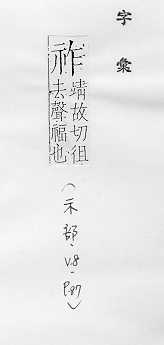 字彙
祚
靖故切徂
去聲福也
(示部.V8.P.87)